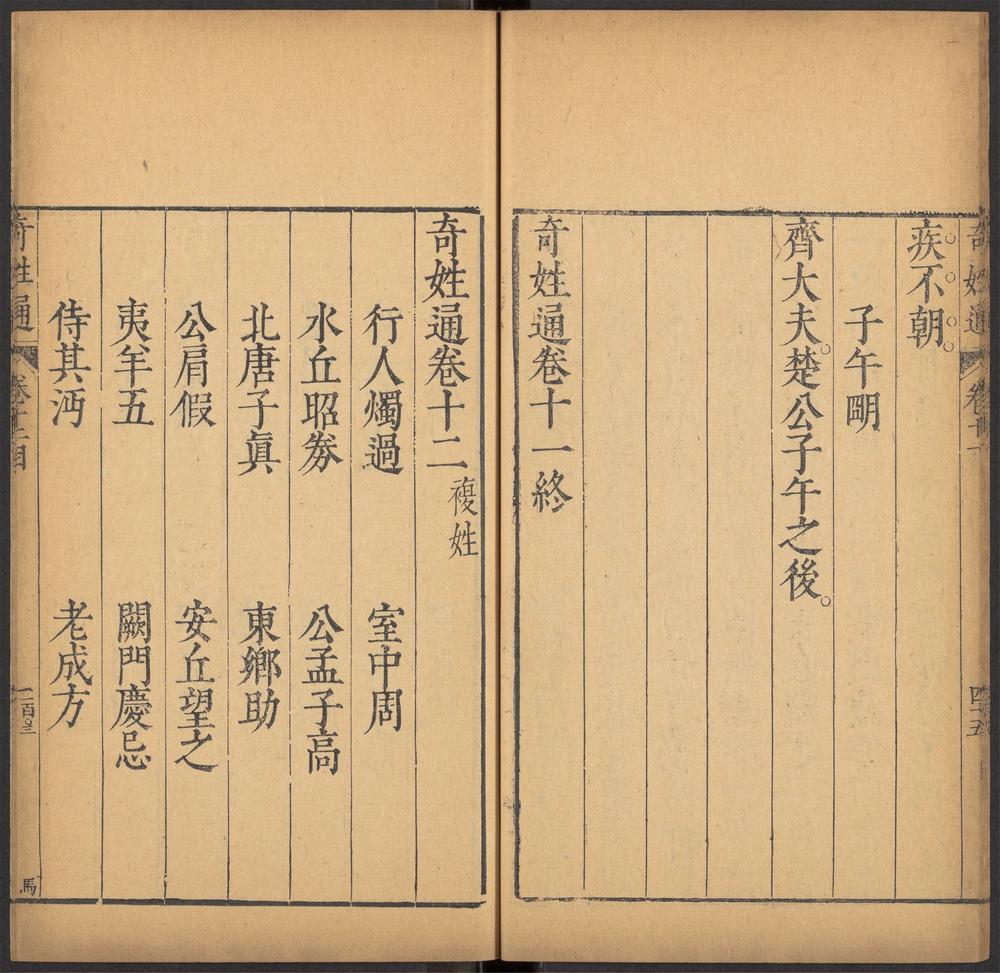 疾不朝。
子午明
齊大夫楚公子午之後。
奇姓通卷十一終
奇姓通
奇姓通卷十二 複姓
行人燭過 室中周
水丘昭券 公孟子高
北唐子眞 東鄉助
公肩假 安丘望之
夷羊五 闕門慶忌
侍其沔 老成方
奇姓通
馬